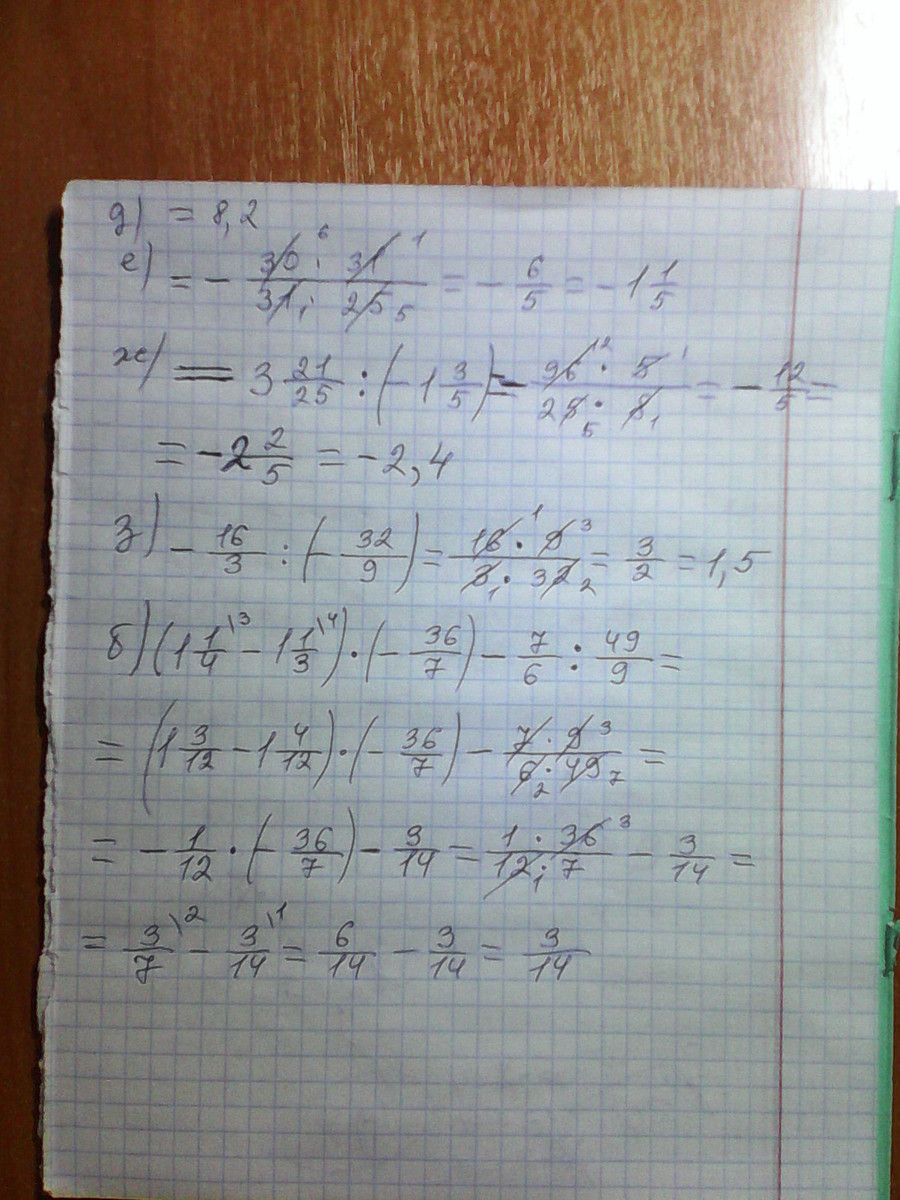 д) = 8,2
е) = - 30 · 31 / 31 · 25 = - 6/5 = - 1 1/5
ж) = 3 21/25 : (- 1 3/5) = - 96 · 5 / 25 · 8 = - 12/5 =
= - 2 2/5 = - 2,4
з) - 16/3 : (- 32/9) = 16 · 9 / 3 · 32 = 3/2 = 1,5
б) (1 1/4 \3 - 1 1/3 \4) · (- 36/7) - 7/6 : 49/9 =
= (1 3/12 - 1 4/12) · (- 36/7) - 7 · 9 / 6 · 49 =
= - 1/12 · (- 36/7) - 3/14 = 1 · 36 / 12 · 7 - 3/14 =
= 3/7 \2 - 3/14 \1 = 6/14 - 3/14 = 3/14